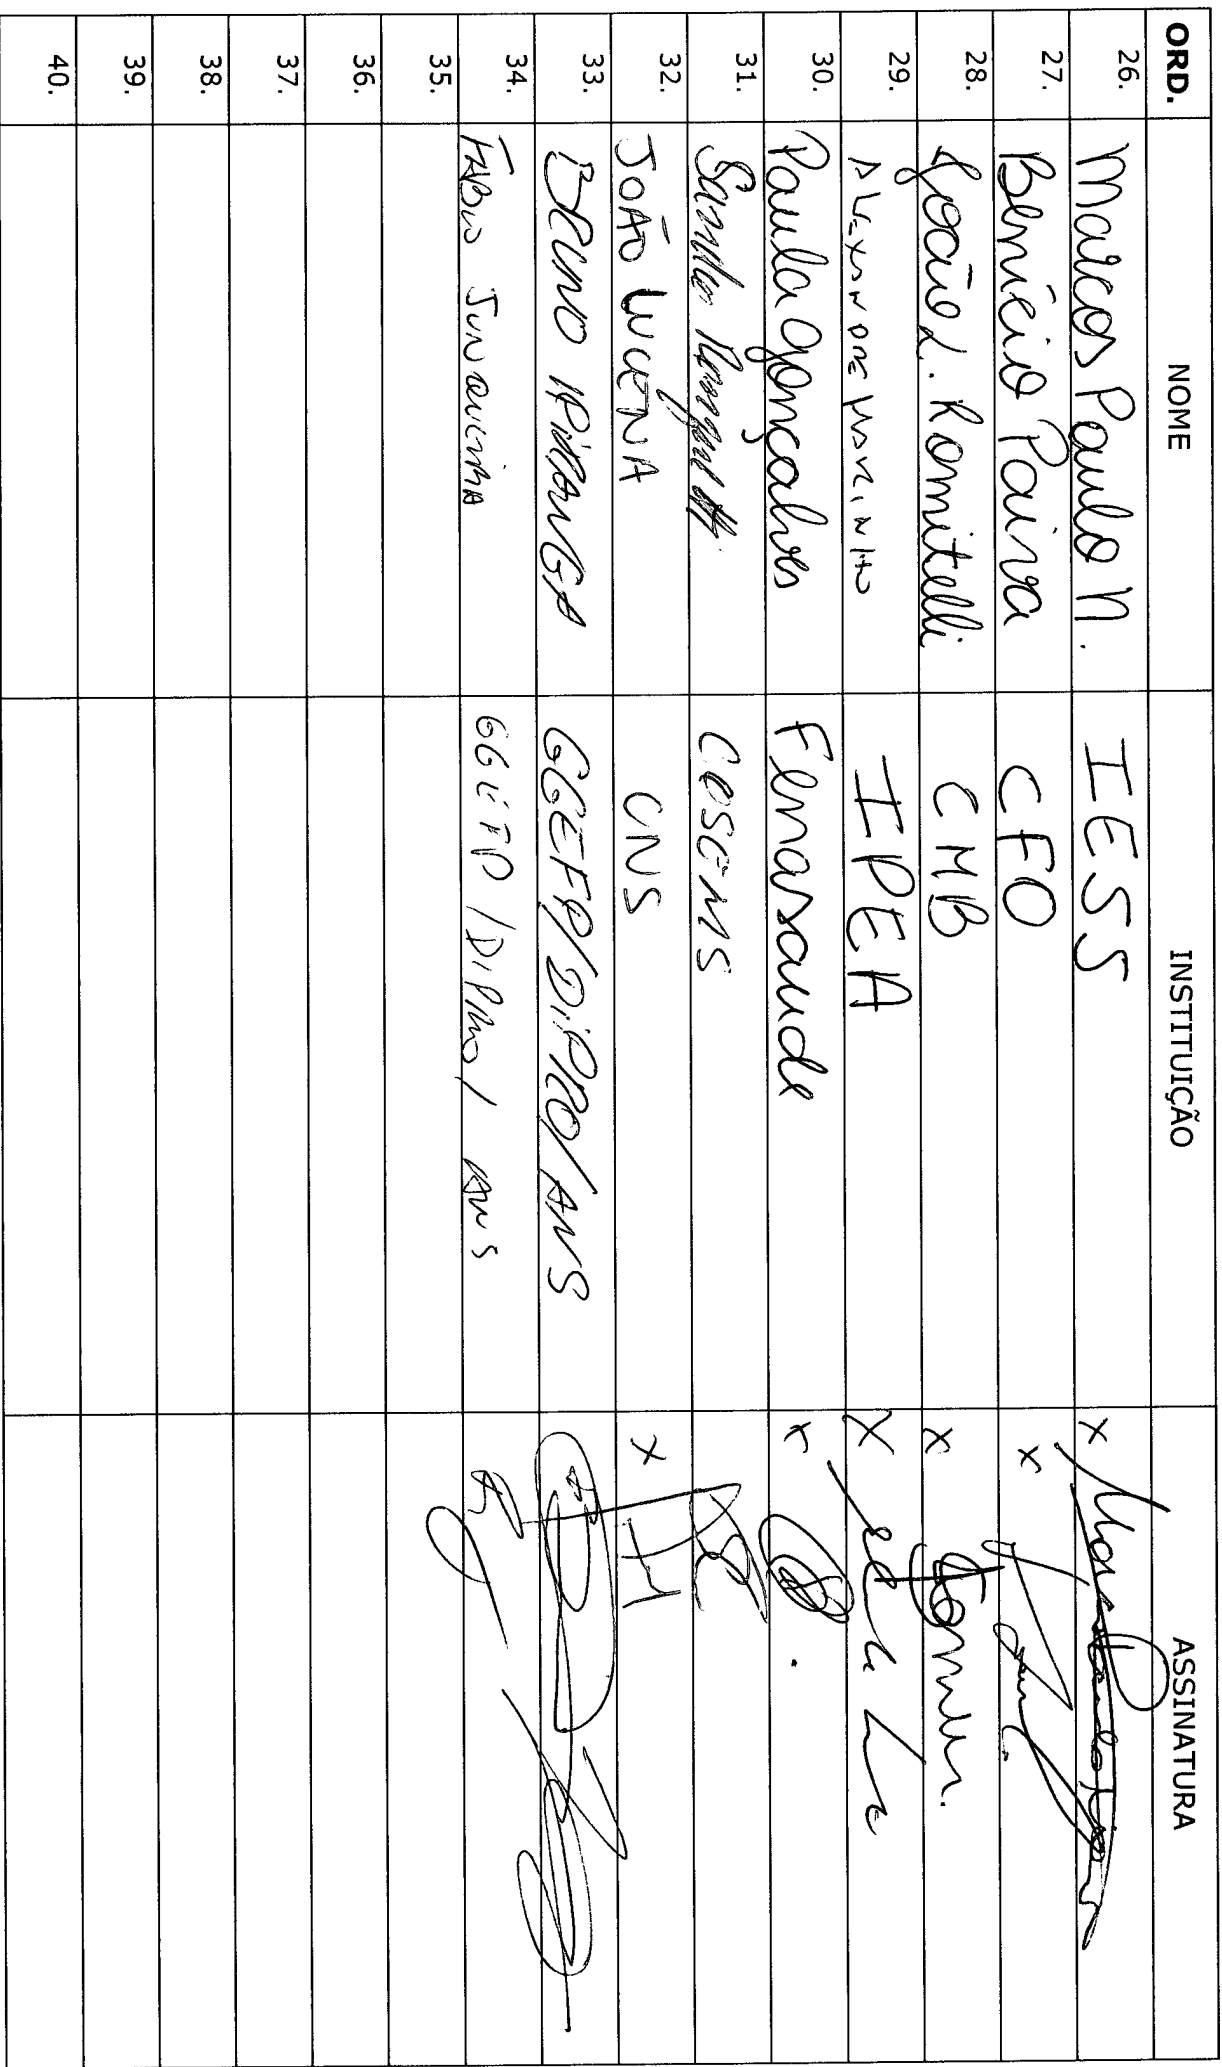 ORD. NOME INSTITUIÇÃO ASSINATURA
26. Marcos Paulo N. IESS x
27. Benício Paiva CFO x
28. João L. Romitelli CMB x
29. ALEXANDRE MARINHO IPEA X
30. Paula Gonçalves Fenasaude x
31. COSEMS
32. JOÃO LUCENA CNS x
33. BRUNO IPIRANGA GGEFP/DIPRO/ANS
34. FABIO JUNQUEIRA GGEFP/DIPRO/ANS
35.
36.
37.
38.
39.
40.